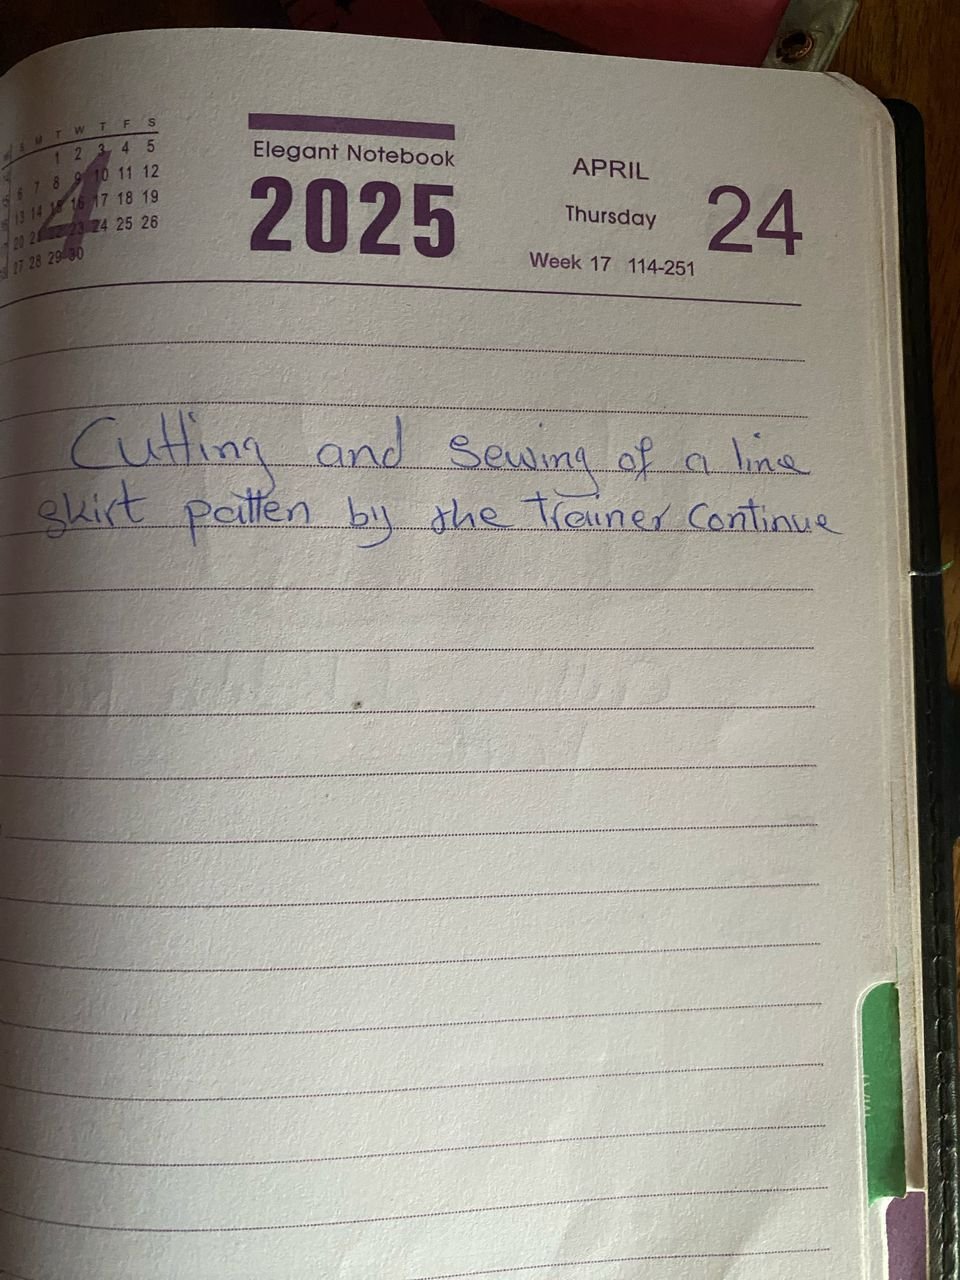 S M T W T F S
1 2 3 4 5
6 7 8 9 10 11 12
13 14 15 16 17 18 19
20 21 22 23 24 25 26
27 28 29 30
4
Elegant Notebook
2025
APRIL
Thursday
24
Week 17 114-251
Cutting and Sewing of a line
skirt patten by the Trainer Continue
MAY